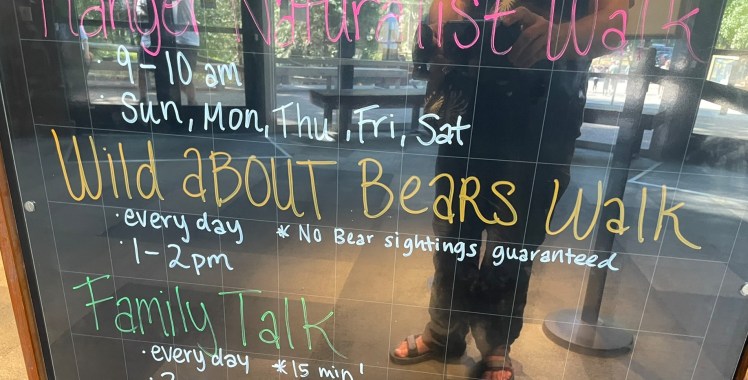 Ranger Naturalist Walk
9-10 am
Sun, Mon, Thu, Fri, Sat
Wild aBOUT BeaRS Walk
·every day * No Bear sightings guaranteed
·1-2pm
Family Talk
·every day *15 min